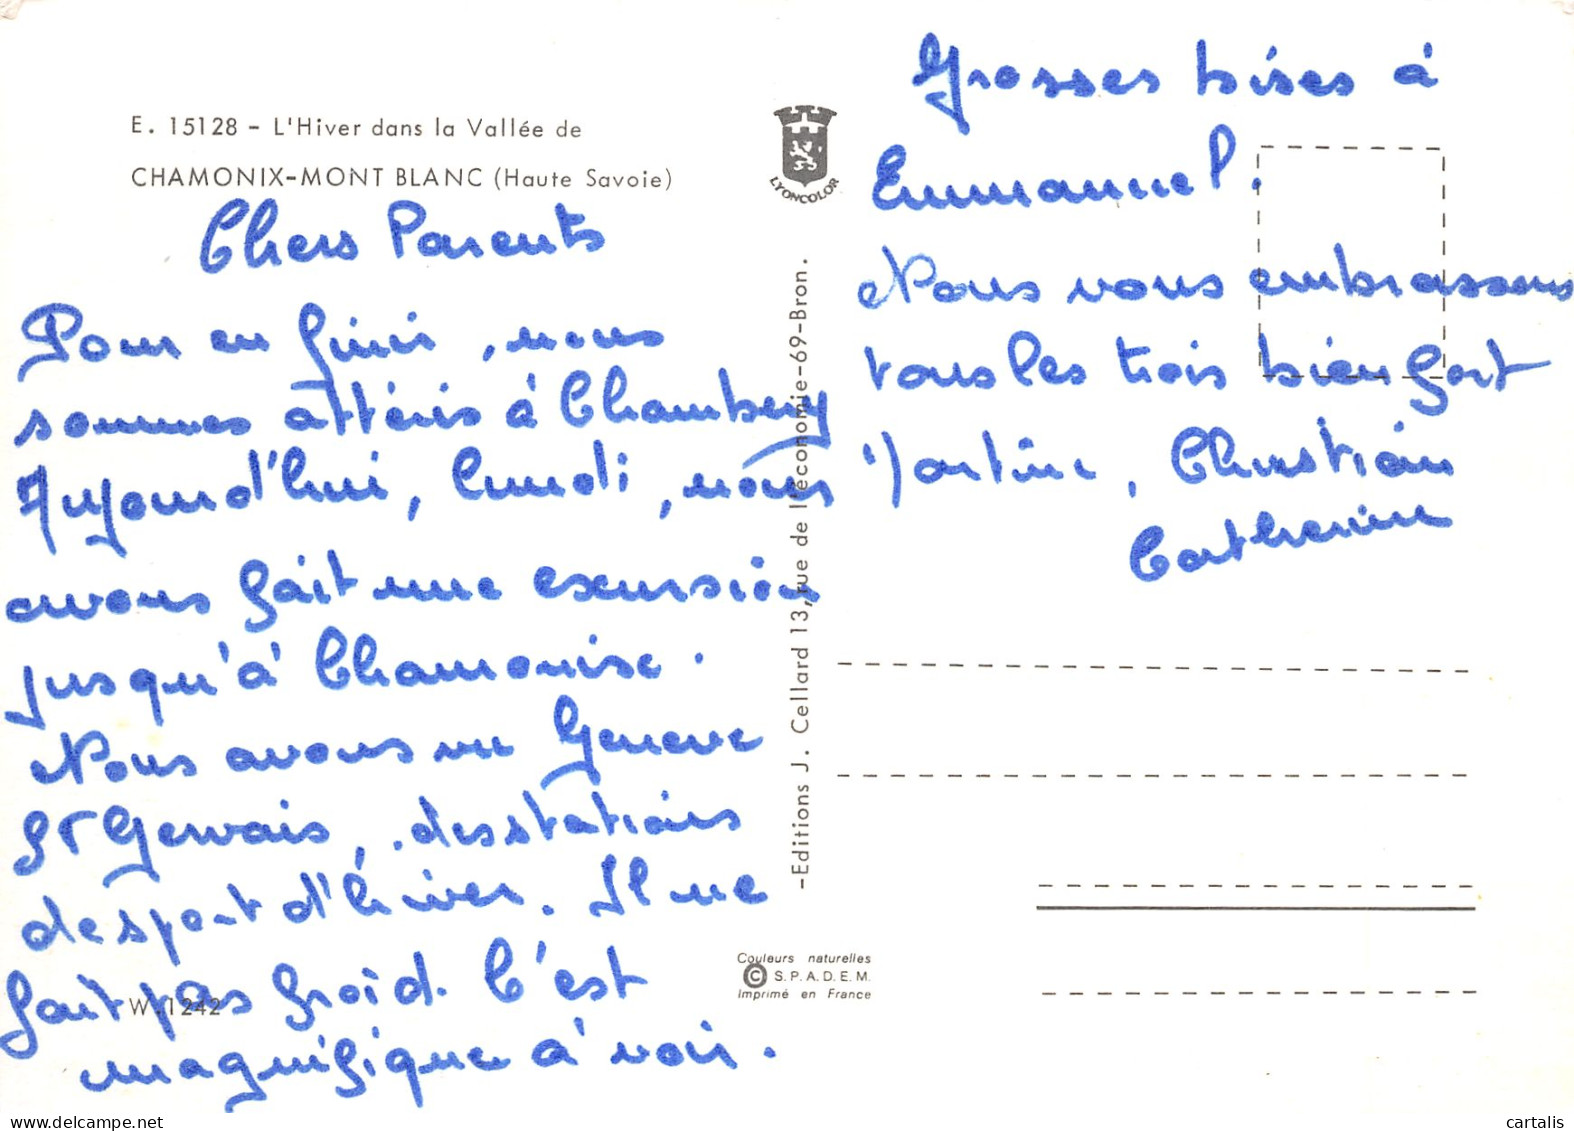 E. 15128 - L'Hiver dans la Vallée de
CHAMONIX-MONT BLANC (Haute Savoie)
Chers Parents
Pour en finir, nous
sommes attéris à Chambery
Aujourd'hui, lundi, nous
avons fait une excursion
jusqu'à Chamonix.
Nous avons vu Geneve
St Gervais, des stations
de sport d'hiver. Il ne
fait pas froid. C'est
magnifique à voir.
W. 1242
LYONCOLOR
-Editions J. Cellard 13, rue de l'économie-69-Bron.
Couleurs naturelles
© S.P.A.D.E.M.
Imprimé en France
Grosses bises à
Emmanuel.
Nous vous embrassons
tous les trois bien fort
Martine, Christian
Catherine
cartalis